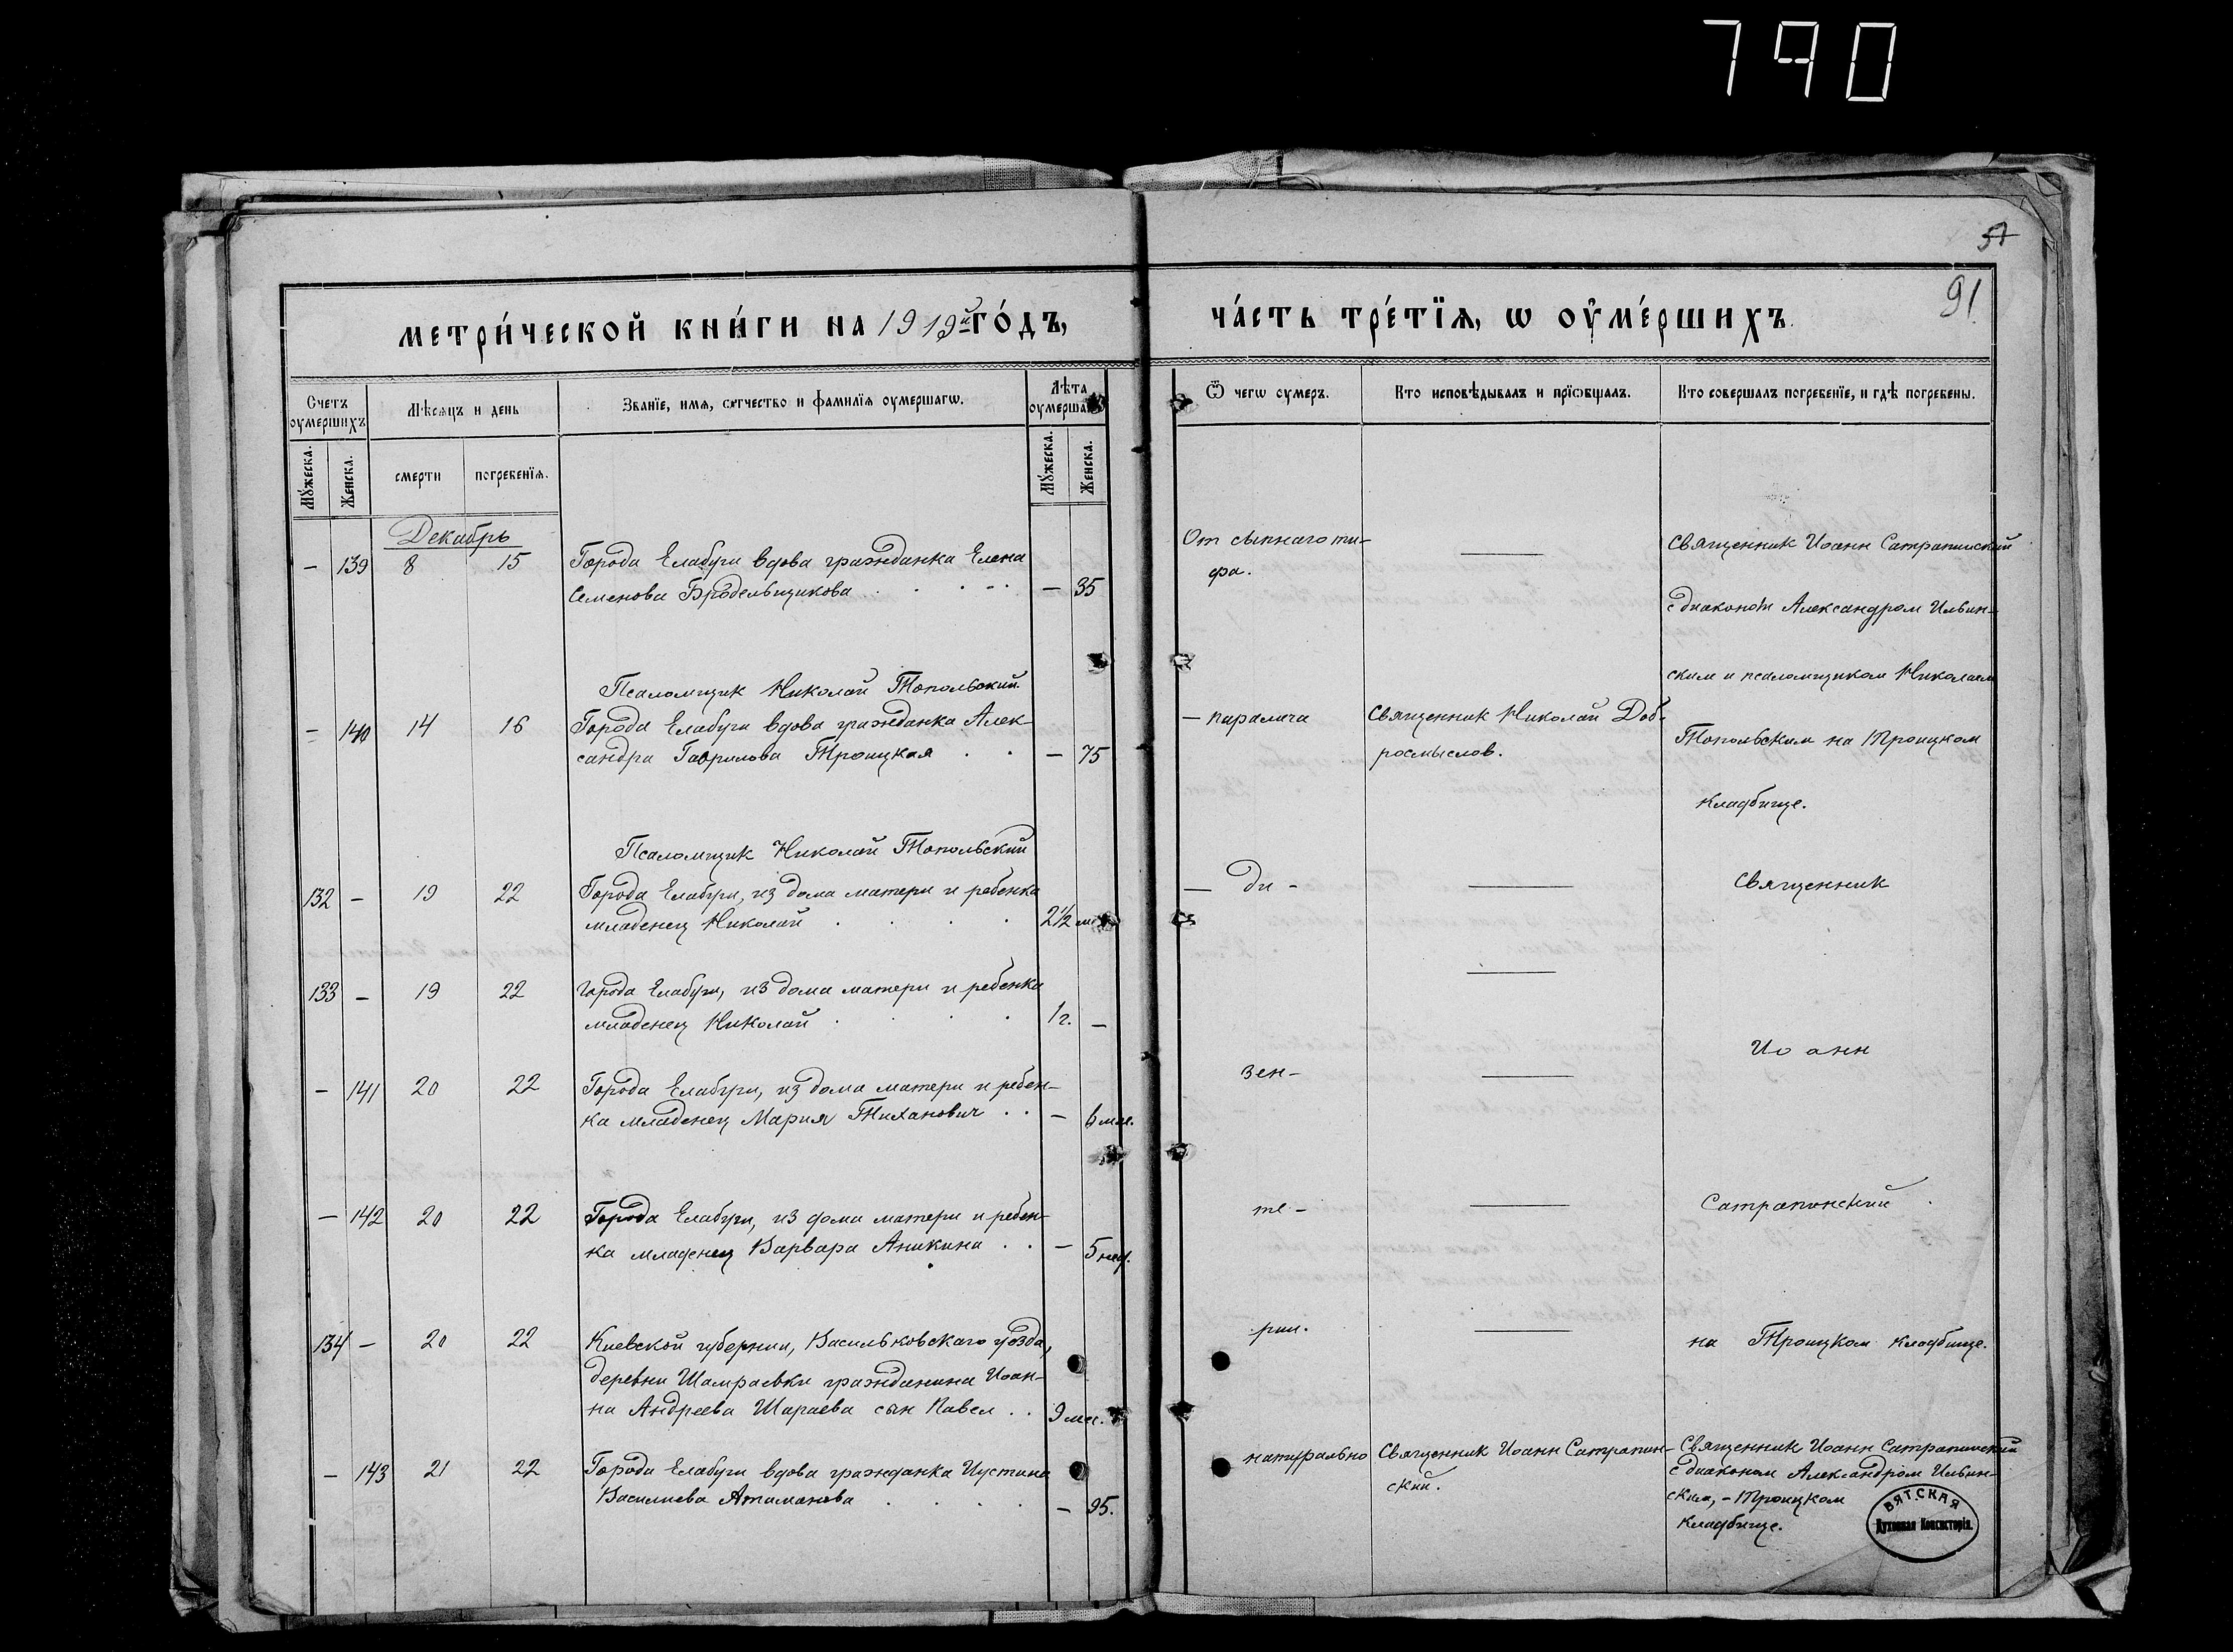 790
57
91
метри́ческой кни́ги на 1919й го́дъ,
ча́сть тре́тїѧ, ѡ оу҆ме́ршихъ.
Счетъ оумершихъ
Мѣсѧцъ и день
Званїе, имѧ, ѻтчество и фамилїѧ оумершагѡ.
Лѣта оумершагѡ
Ѿ чегѡ оумеръ.
Кто исповѣдывалъ и прїѡбщалъ.
Кто совершалъ погребенїе, и гдѣ погребены.
Мꙋжеска.
Женска.
смерти
погребенїѧ.
Мꙋжеска.
Женска.
Декабрь
— 139 8 15 Города Елабуги вдова гражданка Елена
Семенова Бродельщикова . . . . — 35
От сыпнаго ти-
фа.
—
Священник Иоанн Сатрапинский
с диаконом Александром Ильин-
ским и псаломщиком Николаем
Топольским на Троицком
кладбище.
Псаломщик Николай Топольский.
— 140 14 16 Города Елабуги вдова гражданка Алек-
сандра Гаврилова Троицкая . . — 75
— паралича
Священник Николай Доб-
росмыслов.
Псаломщик Николай Топольский
132 — 19 22 Города Елабуги, из дома матери и ребенка
младенец Николай . . . . 2½ м
— ди-
—
Священник
133 — 19 22 Города Елабуги, из дома матери и ребенка
младенец Николай . . . . 1 г. —
—
Иоанн
— 141 20 22 Города Елабуги, из дома матери и ребен-
ка младенец Мария Тиханович . . — 6 мес.
зен-
—
— 142 20 22 Города Елабуги, из дома матери и ребен-
ка младенец Варвара Аникина . . — 5 нед.
те-
—
Сатрапинский
134 — 20 22 Киевской губернии, Васильковскаго уезда,
деревни Шамраевки гражданина Иоан-
на Андреева Шараева сын Павел . . 9 мес.
рии.
—
на Троицком кладбище.
— 143 21 22 Города Елабуги вдова гражданка Иустина
Василиева Атаманова . . . . — 95.
натурально
Священник Иоанн Сатрапин-
ский.
Священник Иоанн Сатрапинский
с диаконом Александром Ильин-
ским, - Троицком
кладбище.
ВЯТСКАЯ
Духовная Консисторія.